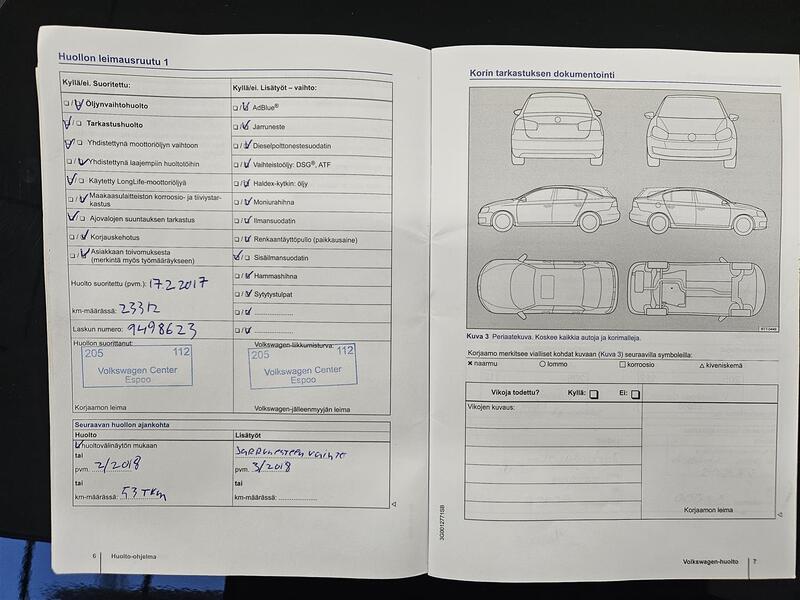 Huollon leimausruutu 1
Kyllä/ei. Suoritettu:
Öljynvaihtohuolto
Tarkastushuolto
Yhdistettynä moottoriöljyn vaihtoon
Yhdistettynä laajempiin huoltotöihin
Käytetty LongLife-moottoriöljyä
Maakaasulaitteiston korroosio- ja tiiviystar-
kastus
Ajovalojen suuntauksen tarkastus
Korjauskehotus
Asiakkaan toivomuksesta
(merkintä myös työmääräykseen)
Huolto suoritettu (pvm.): 17.2.2017
km-määrässä:
Laskun numero: 9498623
Huollon suorittanut:
205 112
Volkswagen Center
Espoo
Korjaamon leima
Kyllä/ei. Lisätyöt – vaihto:
AdBlue®
Jarruneste
Dieselpolttonestesuodatin
Vaihteistoöljy: DSG®, ATF
Haldex-kytkin: öljy
Moniurahihna
Ilmansuodatin
Renkaantäyttöpullo (paikkausaine)
Sisäilmansuodatin
Hammashihna
Sytytystulpat
Volkswagen-liikkumisturva:
205 112
Volkswagen Center
Espoo
Volkswagen-jälleenmyyjän leima
Seuraavan huollon ajankohta
Huolto
huoltovälinäytön mukaan
tai
pvm. 2/2018
tai
km-määrässä: 53 TKm
Lisätyöt
Jarrunesteen vaihto
pvm. 3/2018
tai
km-määrässä:
6 Huolto-ohjelma
Korin tarkastuksen dokumentointi
Kuva 3 Periaatekuva. Koskee kaikkia autoja ja korimalleja.
Korjaamo merkitsee vialliset kohdat kuvaan (Kuva 3) seuraavilla symboleilla:
naarmu lommo korroosio kiveniskemä
Vikoja todettu? Kyllä: Ei:
Vikojen kuvaus:
Korjaamon leima
3G0012771SB
Volkswagen-huolto 7